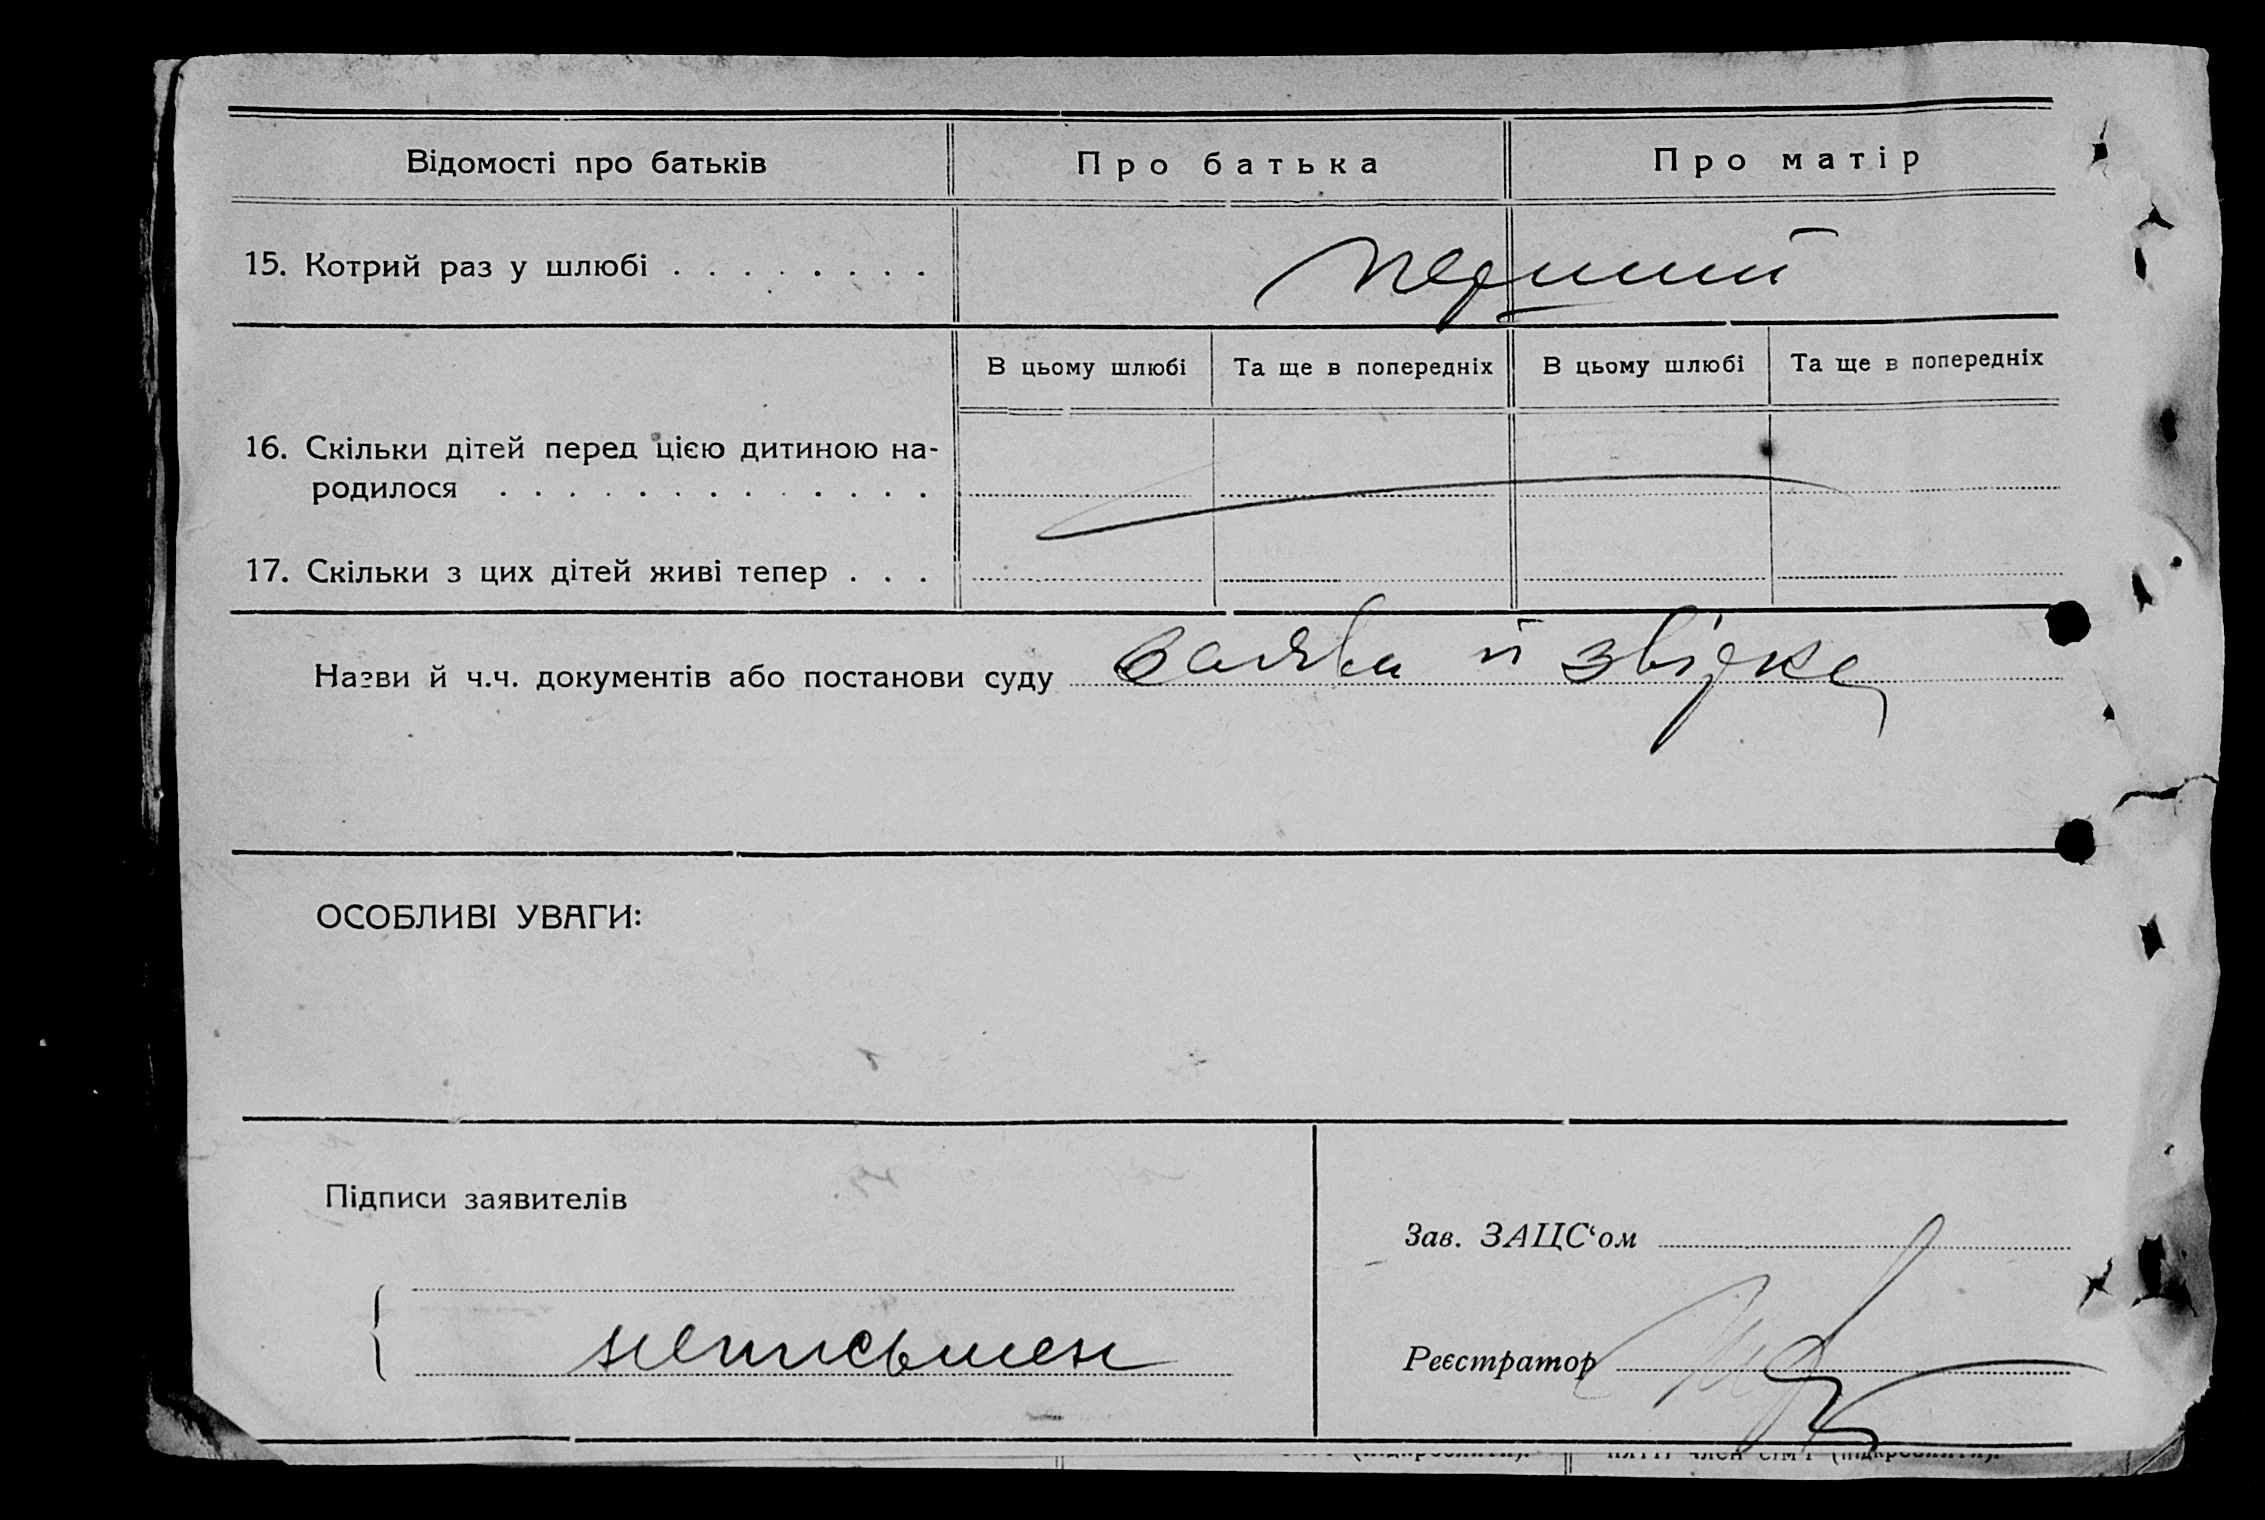 Відомості про батьків Про батька Про матір
15. Котрий раз у шлюбі . . . . . . . . перший
В цьому шлюбі Та ще в попередніх В цьому шлюбі Та ще в попередніх
16. Скільки дітей перед цією дитиною на-
родилося . . . . . . . . . . . . .
17. Скільки з цих дітей живі тепер . . .
Назви й ч.ч. документів або постанови суду заява й звідка
ОСОБЛИВІ УВАГИ:
Підписи заявителів
Зав. ЗАЦС‘ом
неписьмен
Реєстратор
(підкреслити).
член сім'ї (підкреслити).